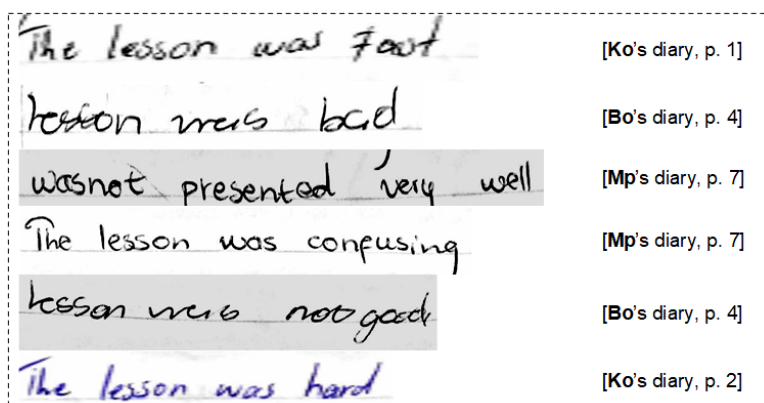 The lesson was Fast [Ko's diary, p. 1]
lesson was bad [Bo's diary, p. 4]
wasnot presented very well [Mp's diary, p. 7]
The lesson was confusing [Mp's diary, p. 7]
lesson was not good [Bo's diary, p. 4]
The lesson was hard [Ko's diary, p. 2]